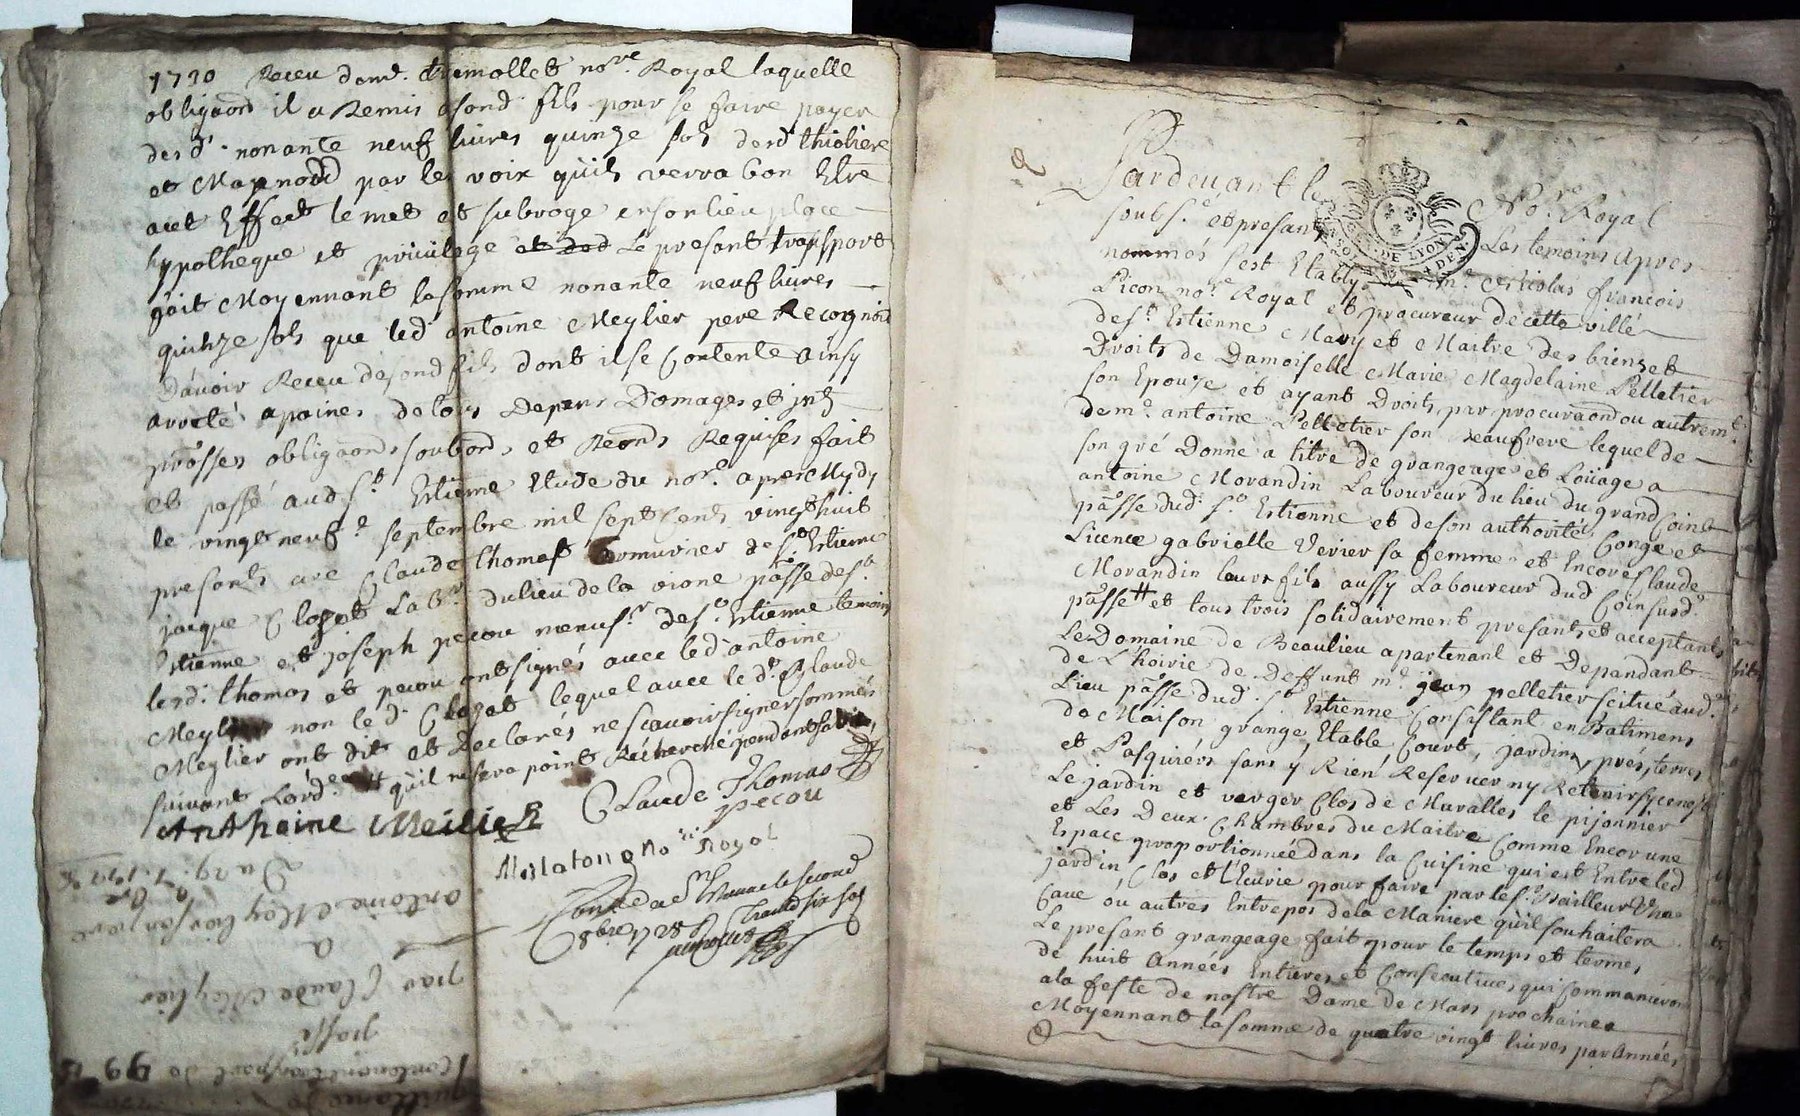 1720 Receu demᵉ. tremollet noʳᵉ Royal laquelle
obligaond il a Remis asond fils pour se faire payer
desdᵗ. nonante neuf livres quinze sols desd thioliere
et Magnodd par les voix qu'il verra bon Etre
acet Effect le met et subroge en son lieu place
hypotheque et privilege et ded Le presant transport
fait Moyennant la somme nonante neuf livres
quinze sols que led antoine Meylier pere Recognoit
D'avoir Receu desond fils dont il se Contente ainsy
arreté apaines de tous Depens Domages et intz
promesses obligaonds soubonds et Reonds Requises fait
et passé aud Sᵗ Estienne Etude du noʳᵉ. apres Mydy
le vingt neufᵉ septembre mil sept cents vingt huit
presants are Claude thomas armurier de Sᵗ Estienne
jacque Clozat Labʳ. du lieu de la vione pâsse de Sᵗ
Estienne et joseph pecou menusʳ de Sᵗ. Estienne temoins
lesd. thomas et pecou ont signés avec led antoine
Meylier non le d. Clozat lequel avec le dᵗ. Claude
Meylier ont dit et Declarés ne scavoir signer sommés
suivant Lordᶜᵉ # qu'il ne sera point Recherché pendant sa vie
Anthoine Meilier
Claude Thomas
pecou
Noʳᵉ Royal
8bre 1728
Du 29. 7. 1728
antoine Meylier son pere
a
par Claude Meylier
passé
Contenant transport de 99
quittance de
&
Pardevant le Noʳᵉ. Royal
soubs.ᵉ et presants Les temoins apres
nommés s'est Etably mᵉ. Nicolas francois
Picon noʳᵉ Royal et procureur de cette ville
de Sᵗ. Estienne Mary et Maitre des biens et
Droits de Damoiselle Marie Magdelaine Pelletier
son Epouze et ayant Droits par procuraond ou autremᵗ.
de mᵉ. antoine Pelletier son Beaufrere lequel de
son gré Donne a titre de grangeage et Loüage a
antoine Morandin Laboureur du lieu du grand Coint
pâsse dud. Sᵗ Estienne et de son authorité Congé et
Licence gabrielle Verier sa femme et Encore Claude
Morandin leurs fils aussy Laboureur dud Coin susdᵗ.
pâsse # et tous trois solidairement presants et acceptants
Le Domaine de Beaulieu apartenant et Dependant
de L'hoirie de Deffunt mᵉ. jean pelletier scitué aud.
Lieu pâsse dud. Sᵗ Estienne Consistant en Batimens
de Maison grange, Etable Court, jardins, prés, terres
et Pasquiers sans y Rien Reserver ny Retenir sy ce n'est
Le jardin et verger Clos de Muralles le pijonnier
et Les Deux Chambres du Maitre Comme Encor une
Espace proportionnée dans la Cuisine qui est Entre led
jardin Clos et l'Ecurie pour faire par le Sᵗ. Bailleur Une
Cave ou autres Entrepos de la Maniere qu'il souhaitera
Le presant grangeage fait pour le temps et termes
de huit Années Entieres et Consecutives qui Commanceront
ala feste de nostre Dame de Mars prochaine
Moyennant la somme de quatre vingt livres par Années